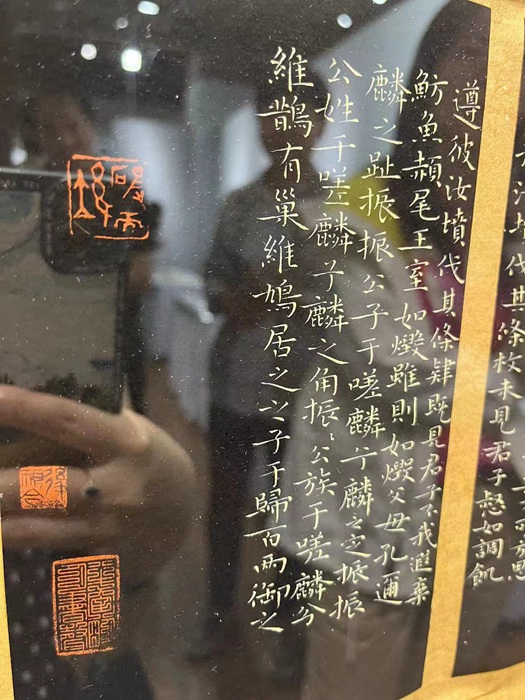 汝墳伐其條枚未見君子惄如調飢
遵彼汝墳伐其條肄既見君子不我遐棄
魴魚赬尾王室如燬雖則如燬父母孔邇
麟之趾振振公子于嗟麟兮麟之定振振
公姓于嗟麟兮麟之角振〻公族于嗟麟兮
維鵲有巢維鳩居之之子于歸百兩御之